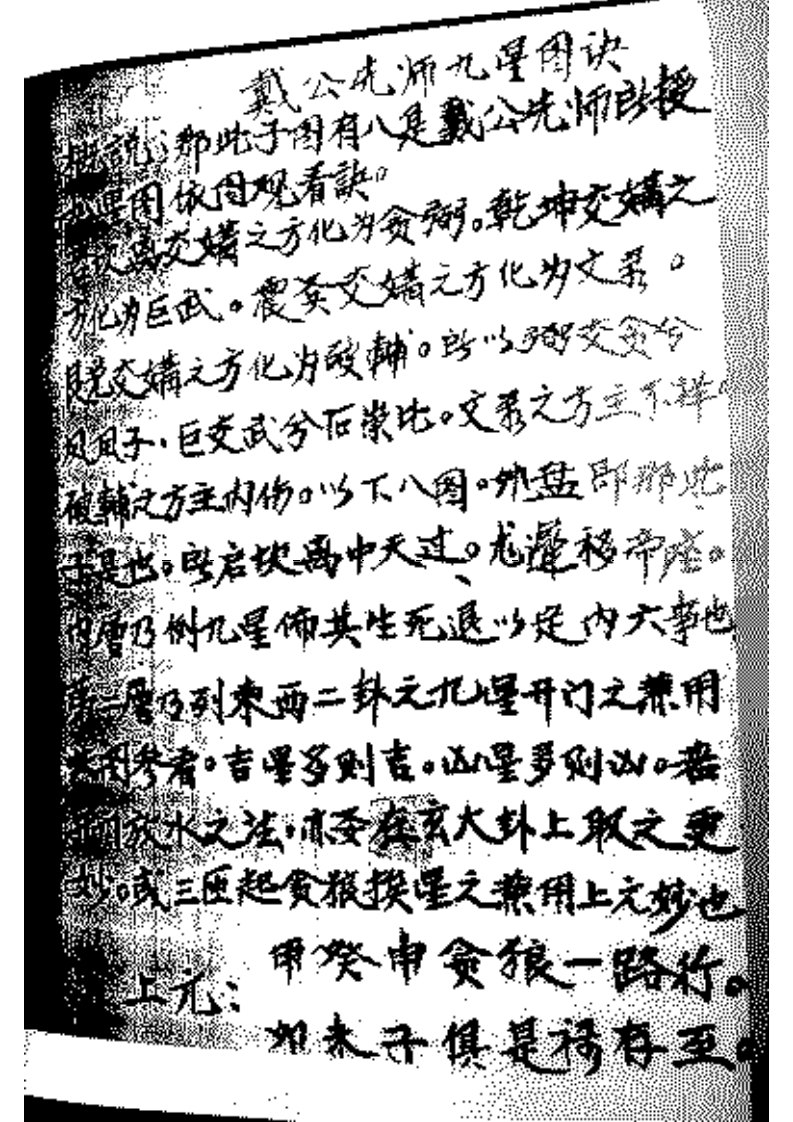 戴公先师九星图诀
概説：那此子图有八是戴公先师所授
九星图依图观看訣。
若坎离交媾之方化为贪弼。乾坤交媾之
方化为巨武。震巽交媾之方化为文禄。
艮兑交媾之方化为破輔。所以弼交贪兮
巨交武兮石崇比。文禄之方主不祥。
破輔之方主内伤。以下八图。外盘即那此
子是也。所启坎离中天过。龙
内層乃例九星佈其生死退以定内六事也
第二層乃列東西二卦之九星开门之兼用
参看。吉星多则吉。凶星多则凶。若
开门放水之法，亦至在玄大卦上取之更
妙。或三匝起贪狼挨星之兼用上元妙也
上元：甲癸申贪狼一路行。
未子俱是禄存至。